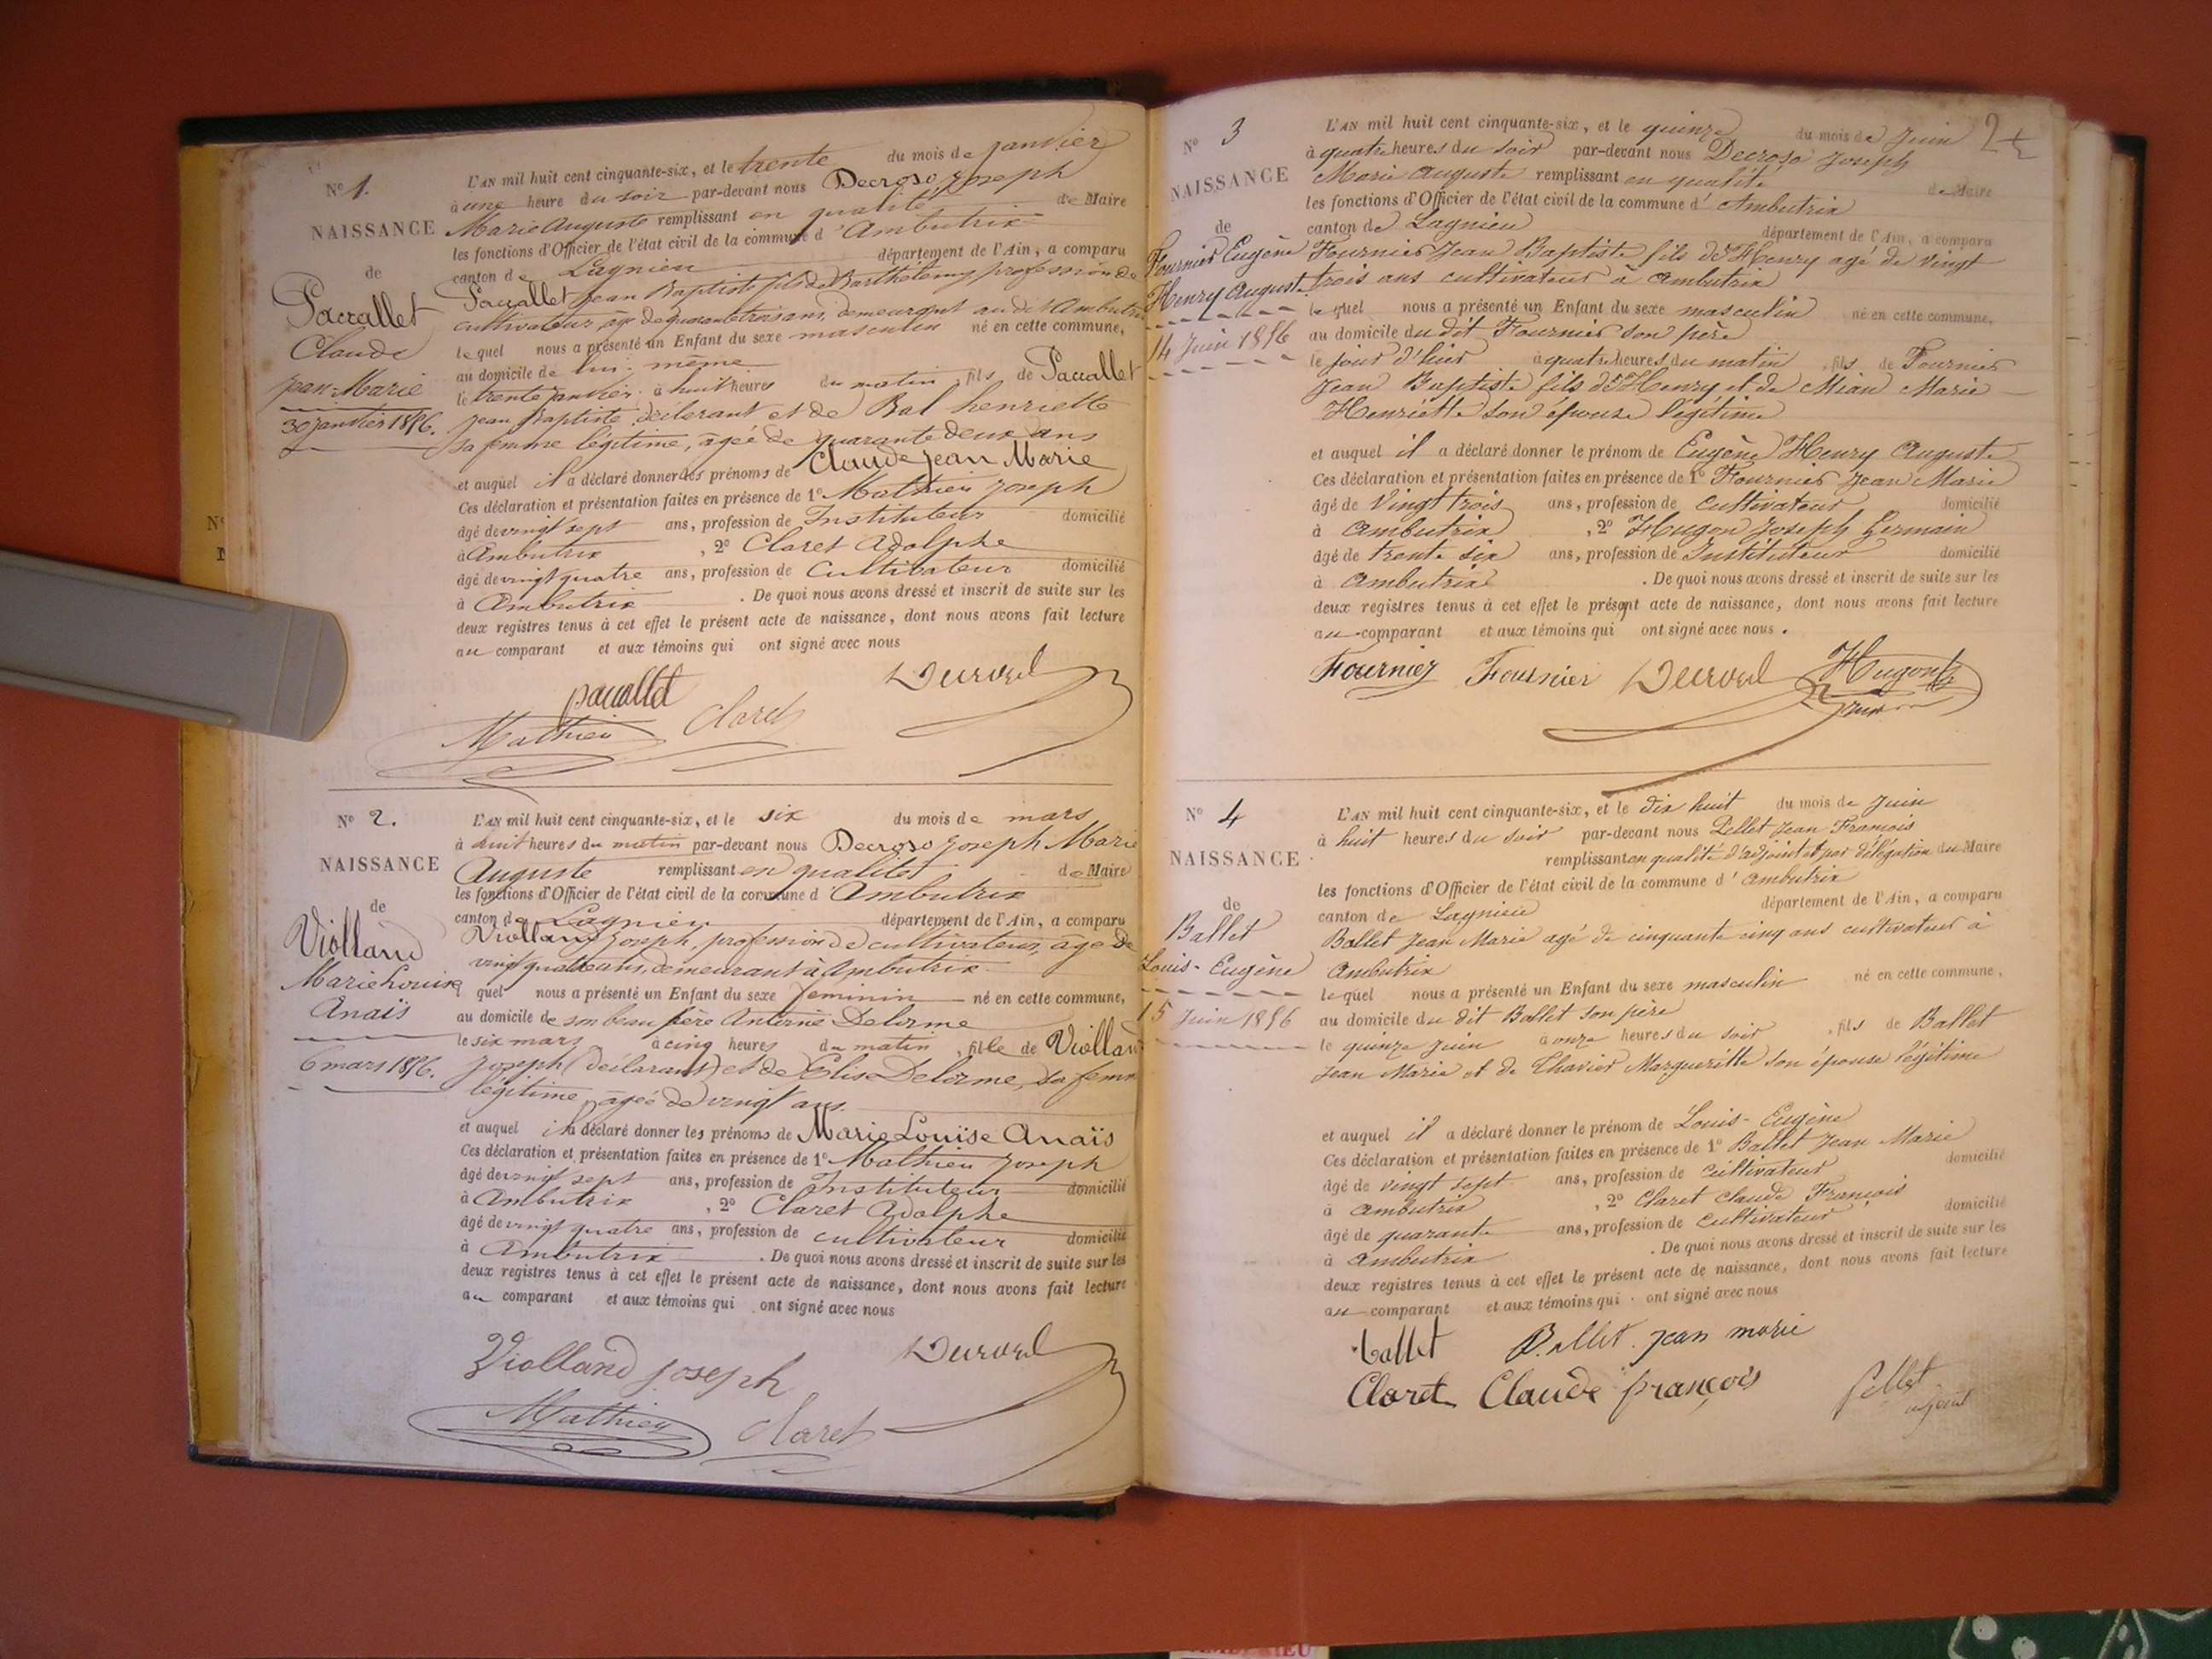 N° 1.
NAISSANCE
de
Pacallet
Claude
Jean-Marie
30 janvier 1856.
L'AN mil huit cent cinquante-six, et le trente du mois de janvier
à une heure du soir par-devant nous Decroso Joseph
Marie Auguste remplissant en qualité de Maire
les fonctions d'Officier de l'état civil de la commune d'Ambutrix
canton de Lagnieu département de l'Ain, a comparu
Pacallet Jean Baptiste fils de Barthélemy profession de
cultivateur, âgé de quarante trois ans, demeurant au dit Ambutrix
lequel nous a présenté un Enfant du sexe masculin né en cette commune,
au domicile de lui-même
le trente janvier à huit heures du matin, fils de Pacallet
Jean Baptiste, déclarant et de Bal henriette
sa femme légitime, âgée de quarante deux ans
et auquel il a déclaré donner les prénoms de Claude Jean Marie
Ces déclaration et présentation faites en présence de 1° Mathieu Joseph
âgé de vingt sept ans, profession de Instituteur domicilié
à Ambutrix, 2° Claret Adolphe
âgé de vingt quatre ans, profession de Cultivateur domicilié
à Ambutrix. De quoi nous avons dressé et inscrit de suite sur les
deux registres tenus à cet effet le présent acte de naissance, dont nous avons fait lecture
au comparant et aux témoins qui ont signé avec nous
pacallet
Mathieu Claret
N° 2.
NAISSANCE
de
Violland
Marie Louise
Anaïs
6 mars 1856.
L'AN mil huit cent cinquante-six, et le six du mois de mars
à huit heures du matin par-devant nous Decroso Joseph Marie
Auguste remplissant en qualité de Maire
les fonctions d'Officier de l'état civil de la commune d'Ambutrix
canton de Lagnieu département de l'Ain, a comparu
Violland Joseph, profession de cultivateur, âgé de
vingt quatre ans, demeurant à Ambutrix
quel nous a présenté un Enfant du sexe féminin né en cette commune,
au domicile de son beau père Antoine Delorme
le six mars à cinq heures du matin, fille de Violland
Joseph (déclarant) et de Elise Delorme, sa femme
légitime, âgée de vingt ans
et auquel il a déclaré donner les prénoms de Marie Louïse Anaïs
Ces déclaration et présentation faites en présence de 1° Mathieu Joseph
âgé de vingt sept ans, profession de Instituteur domicilié
à Ambutrix, 2° Claret Adolphe
âgé de vingt quatre ans, profession de cultivateur domicilié
à Ambutrix. De quoi nous avons dressé et inscrit de suite sur les
deux registres tenus à cet effet le présent acte de naissance, dont nous avons fait lecture
au comparant et aux témoins qui ont signé avec nous
Violland Joseph
Mathieu Claret
N° 3
NAISSANCE
de
Fournier Eugène
Henry Auguste
14 Juin 1856
L'AN mil huit cent cinquante-six, et le quinze du mois de Juin
à quatre heures du soir par-devant nous Decroso Joseph
Marie Auguste remplissant en qualité de Maire
les fonctions d'Officier de l'état civil de la commune d'Ambutrix
canton de Lagnieu département de l'Ain, a comparu
Fournier Jean Baptiste fils de Henry agé de vingt
trois ans cultivateur à Ambutrix
lequel nous a présenté un Enfant du sexe masculin né en cette commune,
au domicile du dit Fournier son père
le jour d'hier à quatre heures du matin, fils de Fournier
Jean Baptiste fils de Henry et de Mian Marie
Henriette son épouse légitime
et auquel il a déclaré donner le prénom de Eugène Henry Auguste
Ces déclaration et présentation faites en présence de 1° Fournier Jean Marie
âgé de Vingt trois ans, profession de cultivateur domicilié
à Ambutrix, 2° Hugon Joseph Germain
âgé de trente six ans, profession de Instituteur domicilié
à Ambutrix. De quoi nous avons dressé et inscrit de suite sur les
deux registres tenus à cet effet le présent acte de naissance, dont nous avons fait lecture
au comparant et aux témoins qui ont signé avec nous.
Fournier Fournier Hugon
N° 4
NAISSANCE
de
Ballet
Louis-Eugène
15 Juin 1856
L'AN mil huit cent cinquante-six, et le dix huit du mois de Juin
à huit heures du soir par-devant nous Pellet Jean François
remplissant en qualité d'adjoint et par délégation du Maire
les fonctions d'Officier de l'état civil de la commune d'Ambutrix
canton de Lagnieu département de l'Ain, a comparu
Ballet Jean Marie agé de cinquante cinq ans cultivateur à
Ambutrix
lequel nous a présenté un Enfant du sexe masculin né en cette commune,
au domicile du dit Ballet son père
le quinze Juin à onze heures du soir, fils de Ballet
Jean Marie et de Chavier Margueritte son épouse légitime
et auquel il a déclaré donner le prénom de Louis-Eugène
Ces déclaration et présentation faites en présence de 1° Ballet Jean Marie
âgé de vingt sept ans, profession de cultivateur domicilié
à Ambutrix, 2° Claret Claude François
âgé de quarante ans, profession de cultivateur domicilié
à Ambutrix. De quoi nous avons dressé et inscrit de suite sur les
deux registres tenus à cet effet le présent acte de naissance, dont nous avons fait lecture
au comparant et aux témoins qui ont signé avec nous
ballet Ballet jean marie
Claret Claude françois Pellet
adjoint